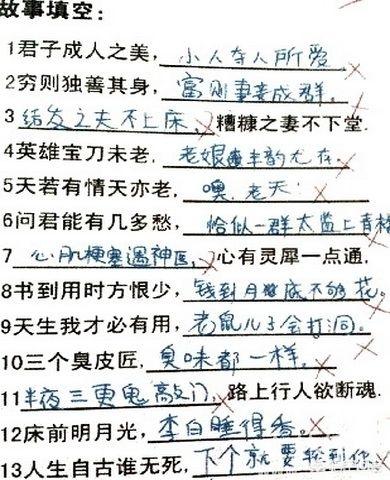 故事填空:
1君子成人之美,小人夺人所爱
2穷则独善其身,富则妻妾成群。
3结发之夫不上床,糟糠之妻不下堂.
4英雄宝刀未老.老娘丰韵尤存.
5天若有情天亦老,噢,老天!
6问君能有几多愁,恰似一群太监上青楼
7心肌梗塞遇神医,心有灵犀一点通.
8书到用时方恨少,钱到月底不够花。
9天生我才必有用,老鼠儿子会打洞.
10三个臭皮匠,臭味都一样。
11半夜三更鬼敲门,路上行人欲断魂.
12床前明月光,李白睡得香。
13人生自古谁无死,下个就要轮到你